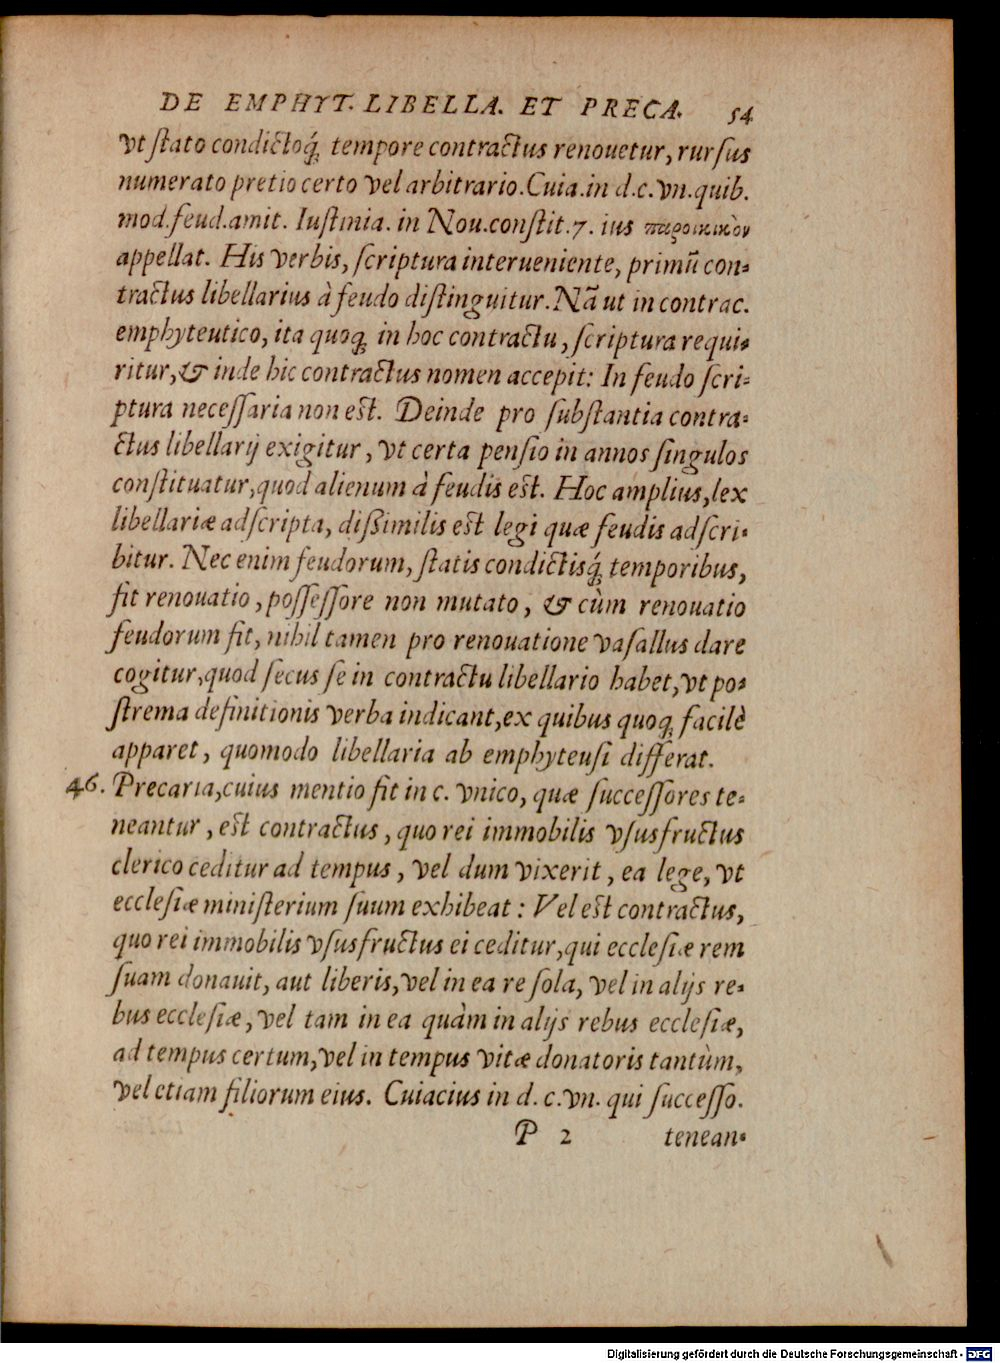 DE EMPHYT. LIBELLA. ET PRECA. 54
vt ſtato condictoq́; tempore contractus renouetur, rurſus
numerato pretio certo vel arbitrario. Cuia. in d. c. vn. quib.
mod. feud. amit. Iuſtinia. in Nou. conſtit. 7. ius παροικικὸν
appellat. His verbis, ſcriptura interueniente, primũ con-
tractus libellarius à feudo diſtinguitur. Nã ut in contrac.
emphyteutico, ita quoq; in hoc contractu, ſcriptura requi-
ritur, & inde hic contractus nomen accepit: In feudo ſcri-
ptura neceſſaria non est. Deinde pro ſubſtantia contra-
ctus libellarij exigitur, vt certa penſio in annos ſingulos
conſtituatur, quod alienum à feudis est. Hoc amplius, lex
libellariæ adſcripta, diſsimilis est legi quæ feudis adſcri-
bitur. Nec enim feudorum, ſtatis condictisq́; temporibus,
fit renouatio, poſſeſſore non mutato, & cùm renouatio
feudorum fit, nihil tamen pro renouatione vaſallus dare
cogitur, quod ſecus ſe in contractu libellario habet, vt po-
ſtrema definitionis verba indicant, ex quibus quoq; facilè
apparet, quomodo libellaria ab emphyteuſi differat.
46. Precaria, cuius mentio fit in c. vnico, quæ ſucceſſores te-
neantur, est contractus, quo rei immobilis vſusfructus
clerico ceditur ad tempus, vel dum vixerit, ea lege, vt
eccleſiæ miniſterium ſuum exhibeat: Vel est contractus,
quo rei immobilis vſusfructus ei ceditur, qui eccleſiæ rem
ſuam donauit, aut liberis, vel in ea re ſola, vel in alijs re-
bus eccleſiæ, vel tam in ea quàm in alijs rebus eccleſiæ,
ad tempus certum, vel in tempus vitæ donatoris tantùm,
vel etiam filiorum eius. Cuiacius in d. c. vn. qui ſucceſſo.
P 2 tenean-
Digitalisierung gefördert durch die Deutsche Forschungsgemeinschaft - DFG